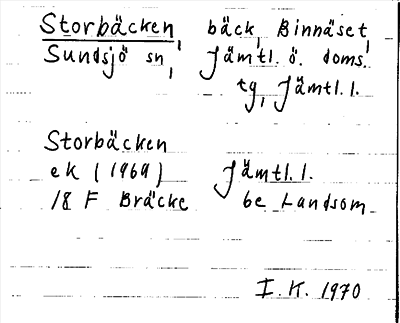 Storbäcken, bäck, Binnäset,
Sundsjö sn, Jämtl. ö. doms.
tg, Jämtl. l.
Storbäcken
ek (1969) Jämtl. l.
18 F Bräcke be Landsom
I. K. 1970